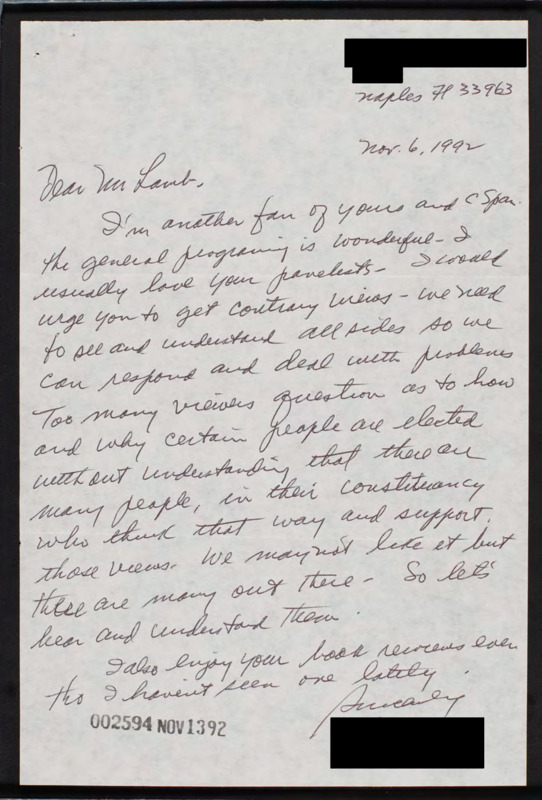 Naples Fl 33963
Nov. 6, 1992
Dear Mr Lamb,
I'm another fan of yours and C Span.
The general programing is wonderful - I
usually love your panelists - I would
urge you to get contrary views - we need
to see and understand all sides so we
can respond and deal with problems
Too many viewers question as to how
and why certain people are elected
without understanding that there are
many people, in their constituancy
who think that way and support
those views. We may not like it but
there are many out there - So let's
hear and understand them.
I also enjoy your book reviews even
tho I haven't seen one lately.
Sincerely
002594 NOV1392